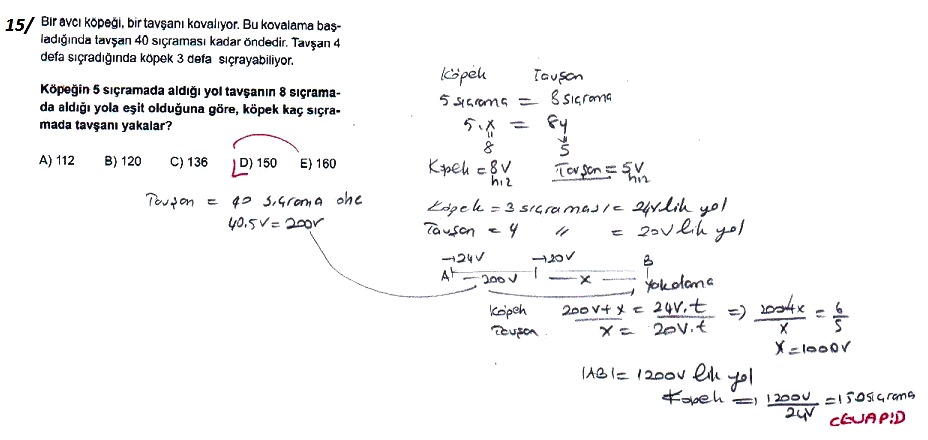 15/ Bir avcı köpeği, bir tavşanı kovalıyor. Bu kovalama baş-
ladığında tavşan 40 sıçraması kadar öndedir. Tavşan 4
defa sıçradığında köpek 3 defa sıçrayabiliyor.
Köpeğin 5 sıçramada aldığı yol tavşanın 8 sıçrama-
da aldığı yola eşit olduğuna göre, köpek kaç sıçra-
mada tavşanı yakalar?
A) 112 B) 120 C) 136 D) 150 E) 160
Tavşan = 40 sıçrama öne
40.5V = 200V
Köpek Tavşan
5 sıçrama = 8 sıçrama
5.x = 8y
8 5
Köpek = 8V Tavşan = 5V
hız hız
Köpek = 3 sıçraması = 24V lik yol
Tavşan = 4 " = 20V lik yol
→24V →20V B
A 200V x Yakalama
Köpek 200V + x = 24V.t => 200+x / x = 6/5
Tavşan x = 20V.t
x = 1000V
|AB| = 1200V lik yol
Köpek => 1200V / 24V = 150 sıçrama
CEVAP:D